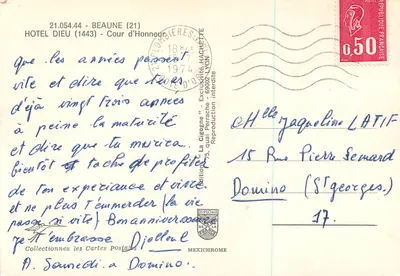 21.054.44 - BEAUNE (21)
HOTEL DIEU (1443) - Cour d'Honneur
que les années passent
vite et dire que tu as
déjà vingt trois années
à peine la maturité
et dire que tu
bientôt tache de profiter
de ton expérience et
et ne plus t'emmerder (la vie
passe si vite) Bon anniversaire
je t'embrasse Djelloul
A Samedi a Domino.
Collectionnez les Cartes Postales
MEXICHROME
Reproduction interdite
18 H
1974
0,50
Mlle Jaqueline LATIF
15 Rue Pierre Semard
Domino (St georges)
17.